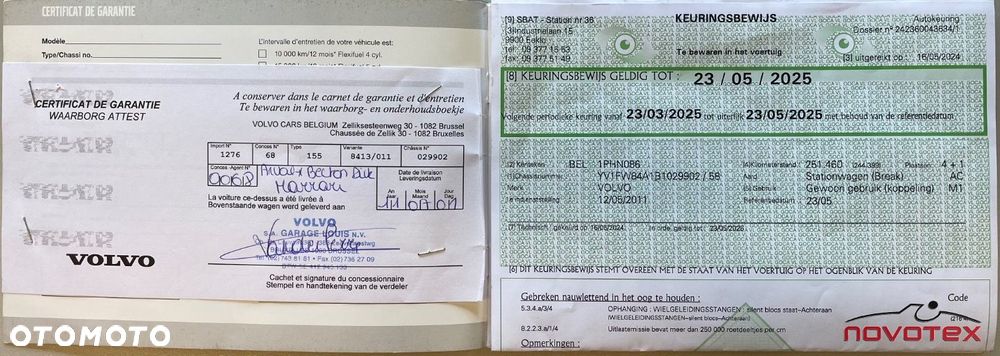 CERTIFICAT DE GARANTIE
Modèle
Type/Chassi no
L'intervalle d'entretien de votre véhicule est:
10 000 km/12 mois* Flexifuel 4 cyl.
CERTIFICAT DE GARANTIE
WAARBORG ATTEST
A conserver dans le carnet de garantie et d'entretien
Te bewaren in het waarborg- en onderhoudsboekje
VOLVO CARS BELGIUM Zelliksesteenweg 30 - 1082 Brussel
Chaussée de Zellik 30 - 1082 Bruxelles
Import N° Conces N° Type Variante Châssis N°
1276 68 155 8413/011 029902
Conces.-Agent N°
0068
Date de livraison
Leveringsdatum
An Jaar Mois Maand Jour Dag
11 07 01
La voiture ce-dessus a été livrée à
Bovenstaande wagen werd geleverd aan
VOLVO
S.A. GARAGE LOUIS N.V.
Tel (02) 743 81 81 • Fax (02) 736 27 09
VOLVO
Cachet et signature du concessionnaire
Stempel en handtekening van de verdeler
OTOMOTO
[9] SBAT - Station nr 36
Industrielaan 15
9900 Eeklo
tel: 09 377 18 63
fax: 09 377 51 49
KEURINGSBEWIJS
Te bewaren in het voertuig
Autokeuring
Dossier n° 242360043634/1
[3] uitgereikt op : 16/05/2024
[8] KEURINGSBEWIJS GELDIG TOT : 23 / 05 / 2025
Volgende periodieke keuring vanaf 23/03/2025 tot uiterlijk 23/05/2025 met behoud van de referentiedatum
[2] Kenteken BEL 1PHN086
[4] Kilometerstand : 251.460 Plaatsen 4 + 1
[1] Chassisnummer YV1FW84A1B1029902 / 58
Aard : Stationwagen (Break) AC
Merk VOLVO
[5] Gebruik : Gewoon gebruik (koppeling) M1
1e indienststelling 12/05/2011
Referentiedatum : 23/05
[7] Technisch : gekeurd op 16/05/2024 In orde, geldig tot : 23/05/2025
[6] DIT KEURINGSBEWIJS STEMT OVEREEN MET DE STAAT VAN HET VOERTUIG OP HET OGENBLIK VAN DE KEURING
Gebreken nauwlettend in het oog te houden :
Code
5.3.4.a/3/4 OPHANGING : WIELGELEIDINGSSTANGEN silent blocs staat-Achteraan
(WIELGELEIDINGSSTANGEN-silent blocs-Achteraan)
8.2.2.3.a/1/4 Uitlaatemissie bevat meer dan 250 000 roetdeeltjes per cm
Opmerkingen :
novotex